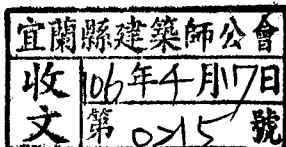 宜蘭縣建築師公會
收文
106年4月17日
第0215號